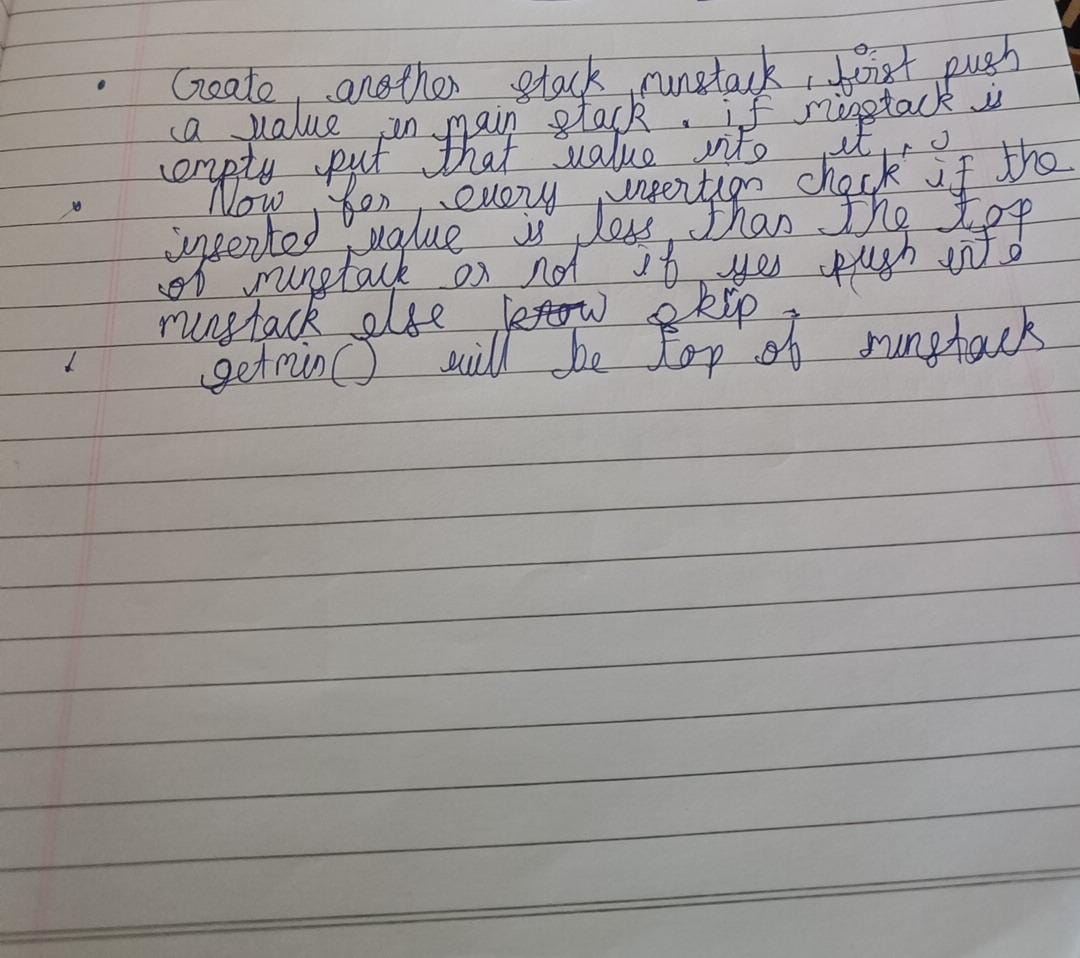 • Create another stack minstack, first push
a value in main stack. if minstack is
empty put that value into it.
Now for every insertion check if the
inserted value is less than the top
of minstack or not if yes push into
minstack else know skip.
getmin() will be top of minstack